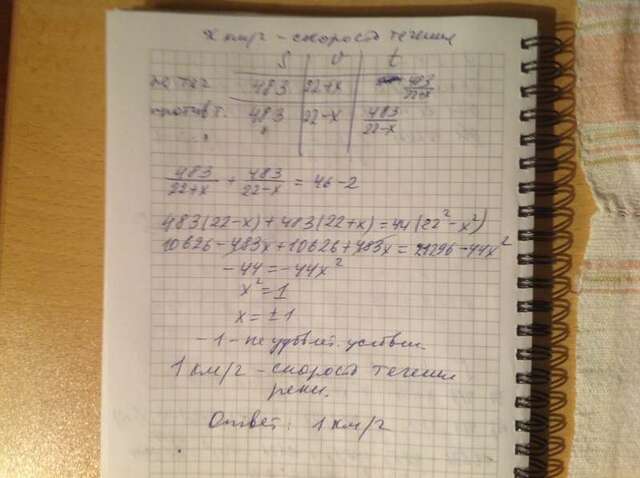 x км/ч - скорость течения
S v t
по теч. 483 22+x 483/22+x
против т. 483 22-x 483/22-x
483/22+x + 483/22-x = 46-2
483(22-x)+483(22+x)=44(22²-x²)
10626-483x+10626+483x=21296-44x²
-44=-44x²
x²=1
x=±1
-1 - не удовл. услов.
1 км/ч - скорость течения
реки.
Ответ: 1 км/ч